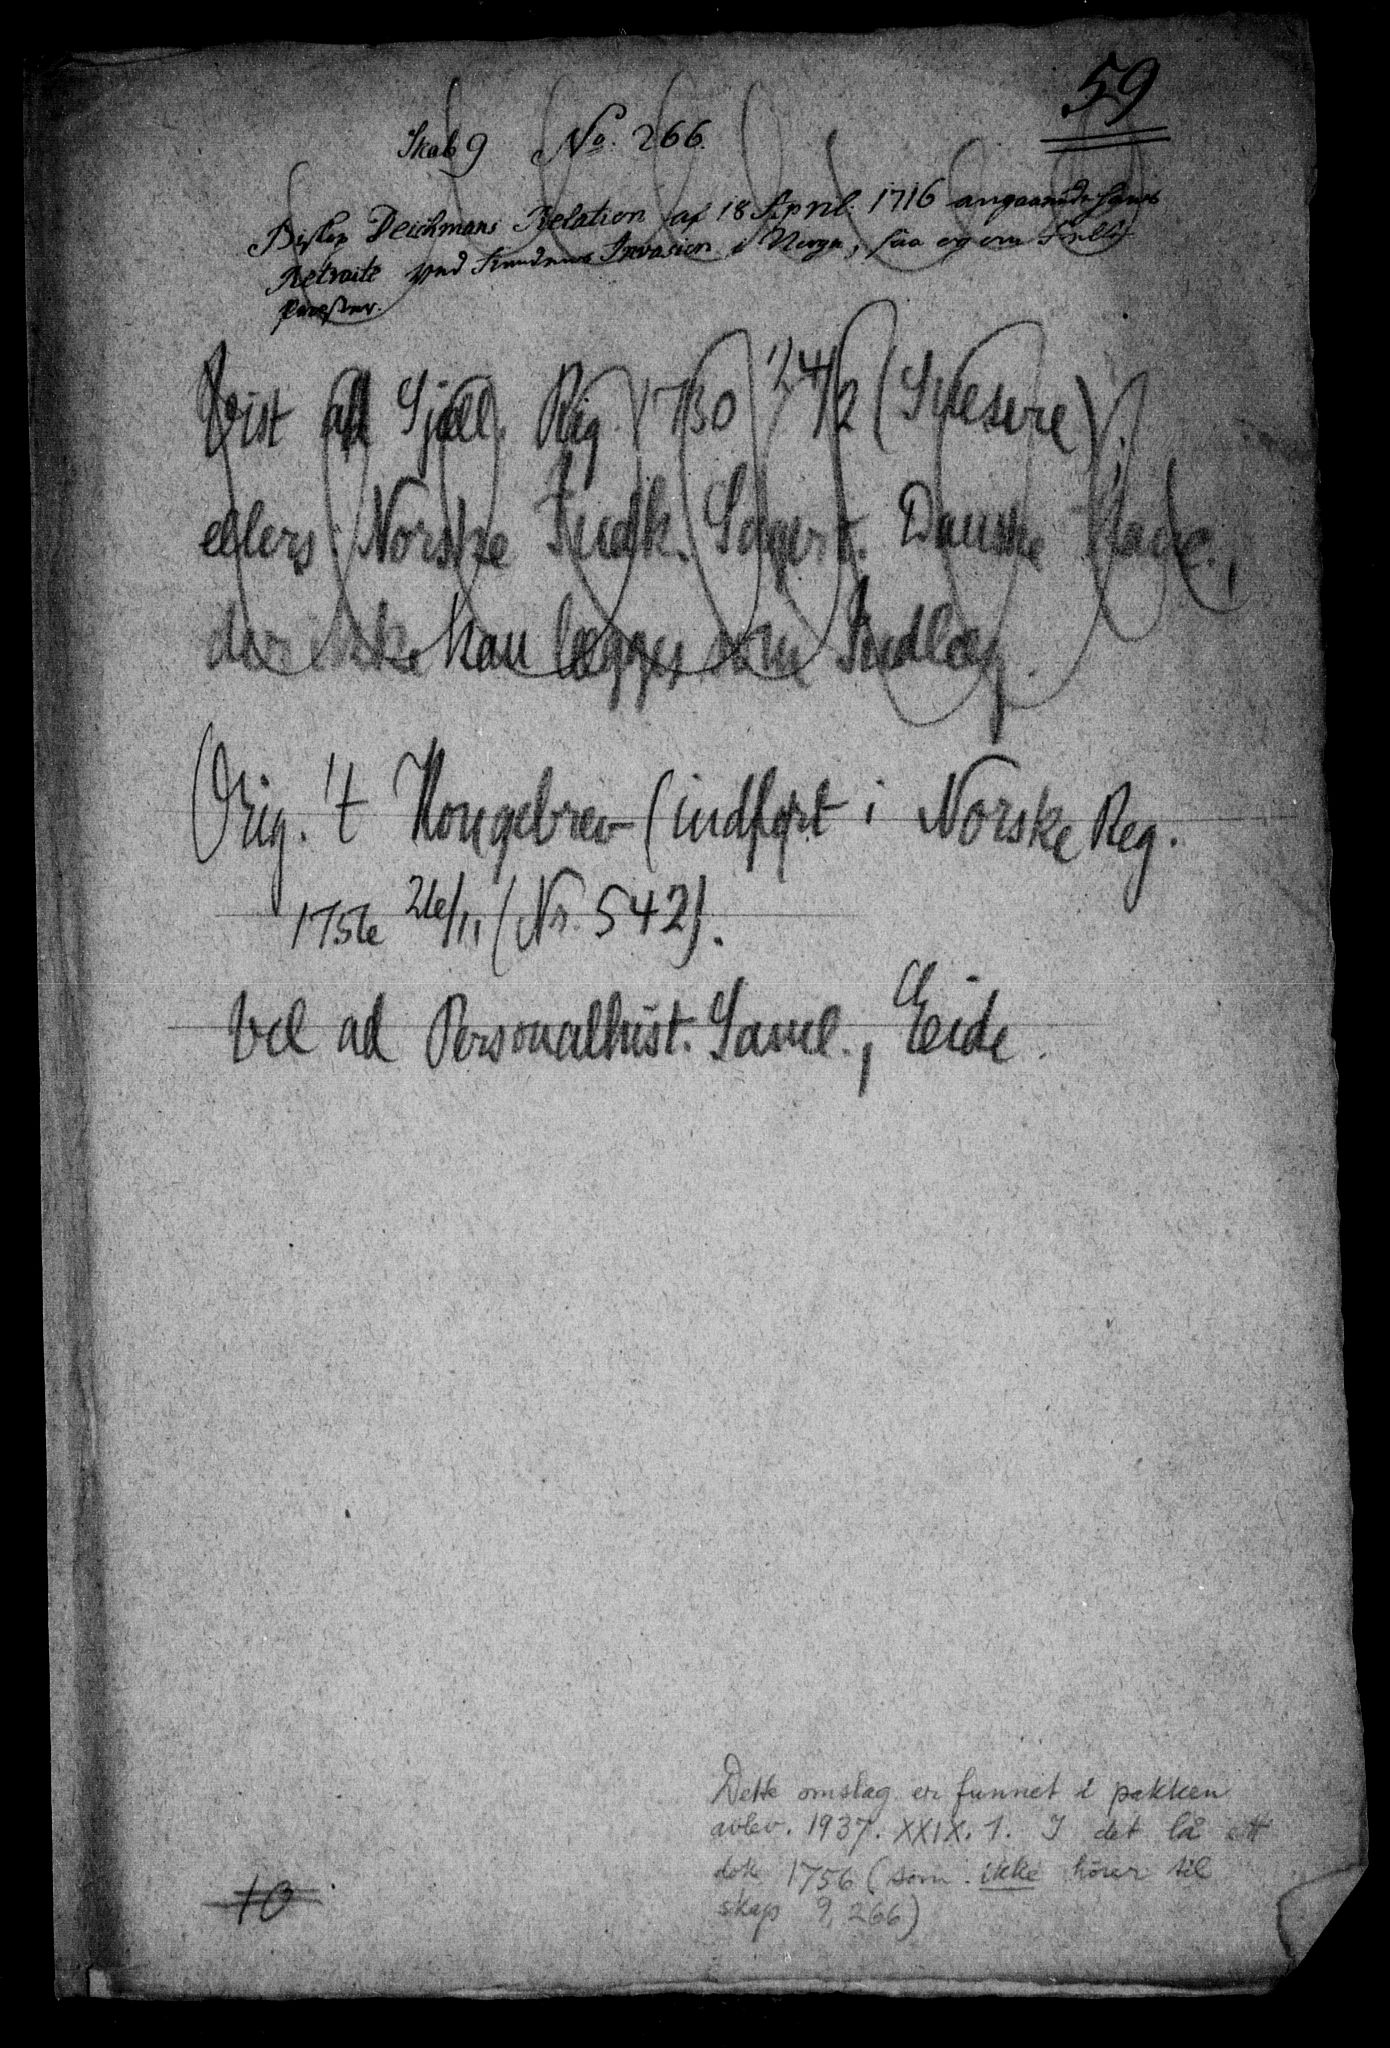 59
Skab 9 No. 266.
Biskop Deichmans Relation af 18 April 1716 angaaende hans
Retraite ved Fiendens Invasion i Norge, saa og om
præster.
Vist ad Sjæll. Reg. 1730 24/2 ( );
ellers Norske Indk. Sager t. Danske Kanc.,
der ikke kan lægges som Indlæg.
Orig. t Kongebrev (indført i Norske Reg.
1756 26/11 (Nr. 542).
Vel ad Personalhist. Saml., Eeide.
Dette omslag er funnet i pakken
avlev. 1937. XXIX. 1. I det lå ett
dok 1756 (som ikke hører til
skap 9, 266)
10